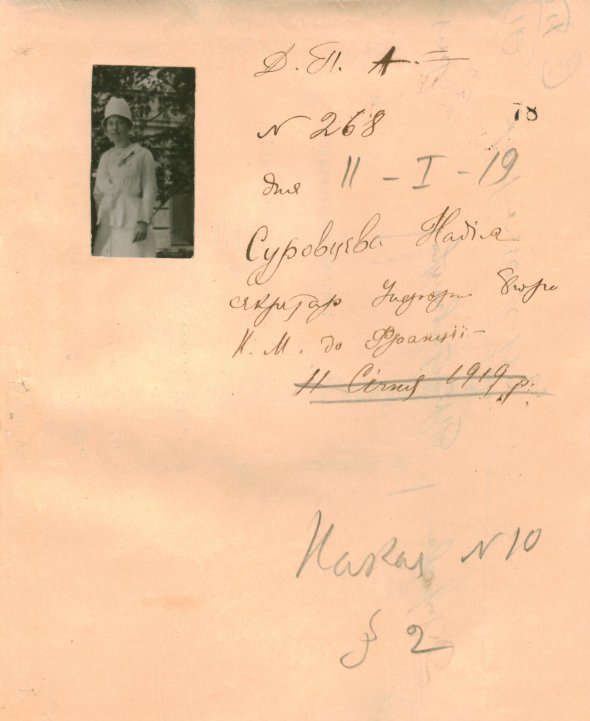 Д. П. А.
N 268
78
дня 11 - I - 19
Суровцева Надія
секретар Інформ. Бюро
Н. М. до Франції
11 Січня 1919 р.
Наказ N 10
§ 2